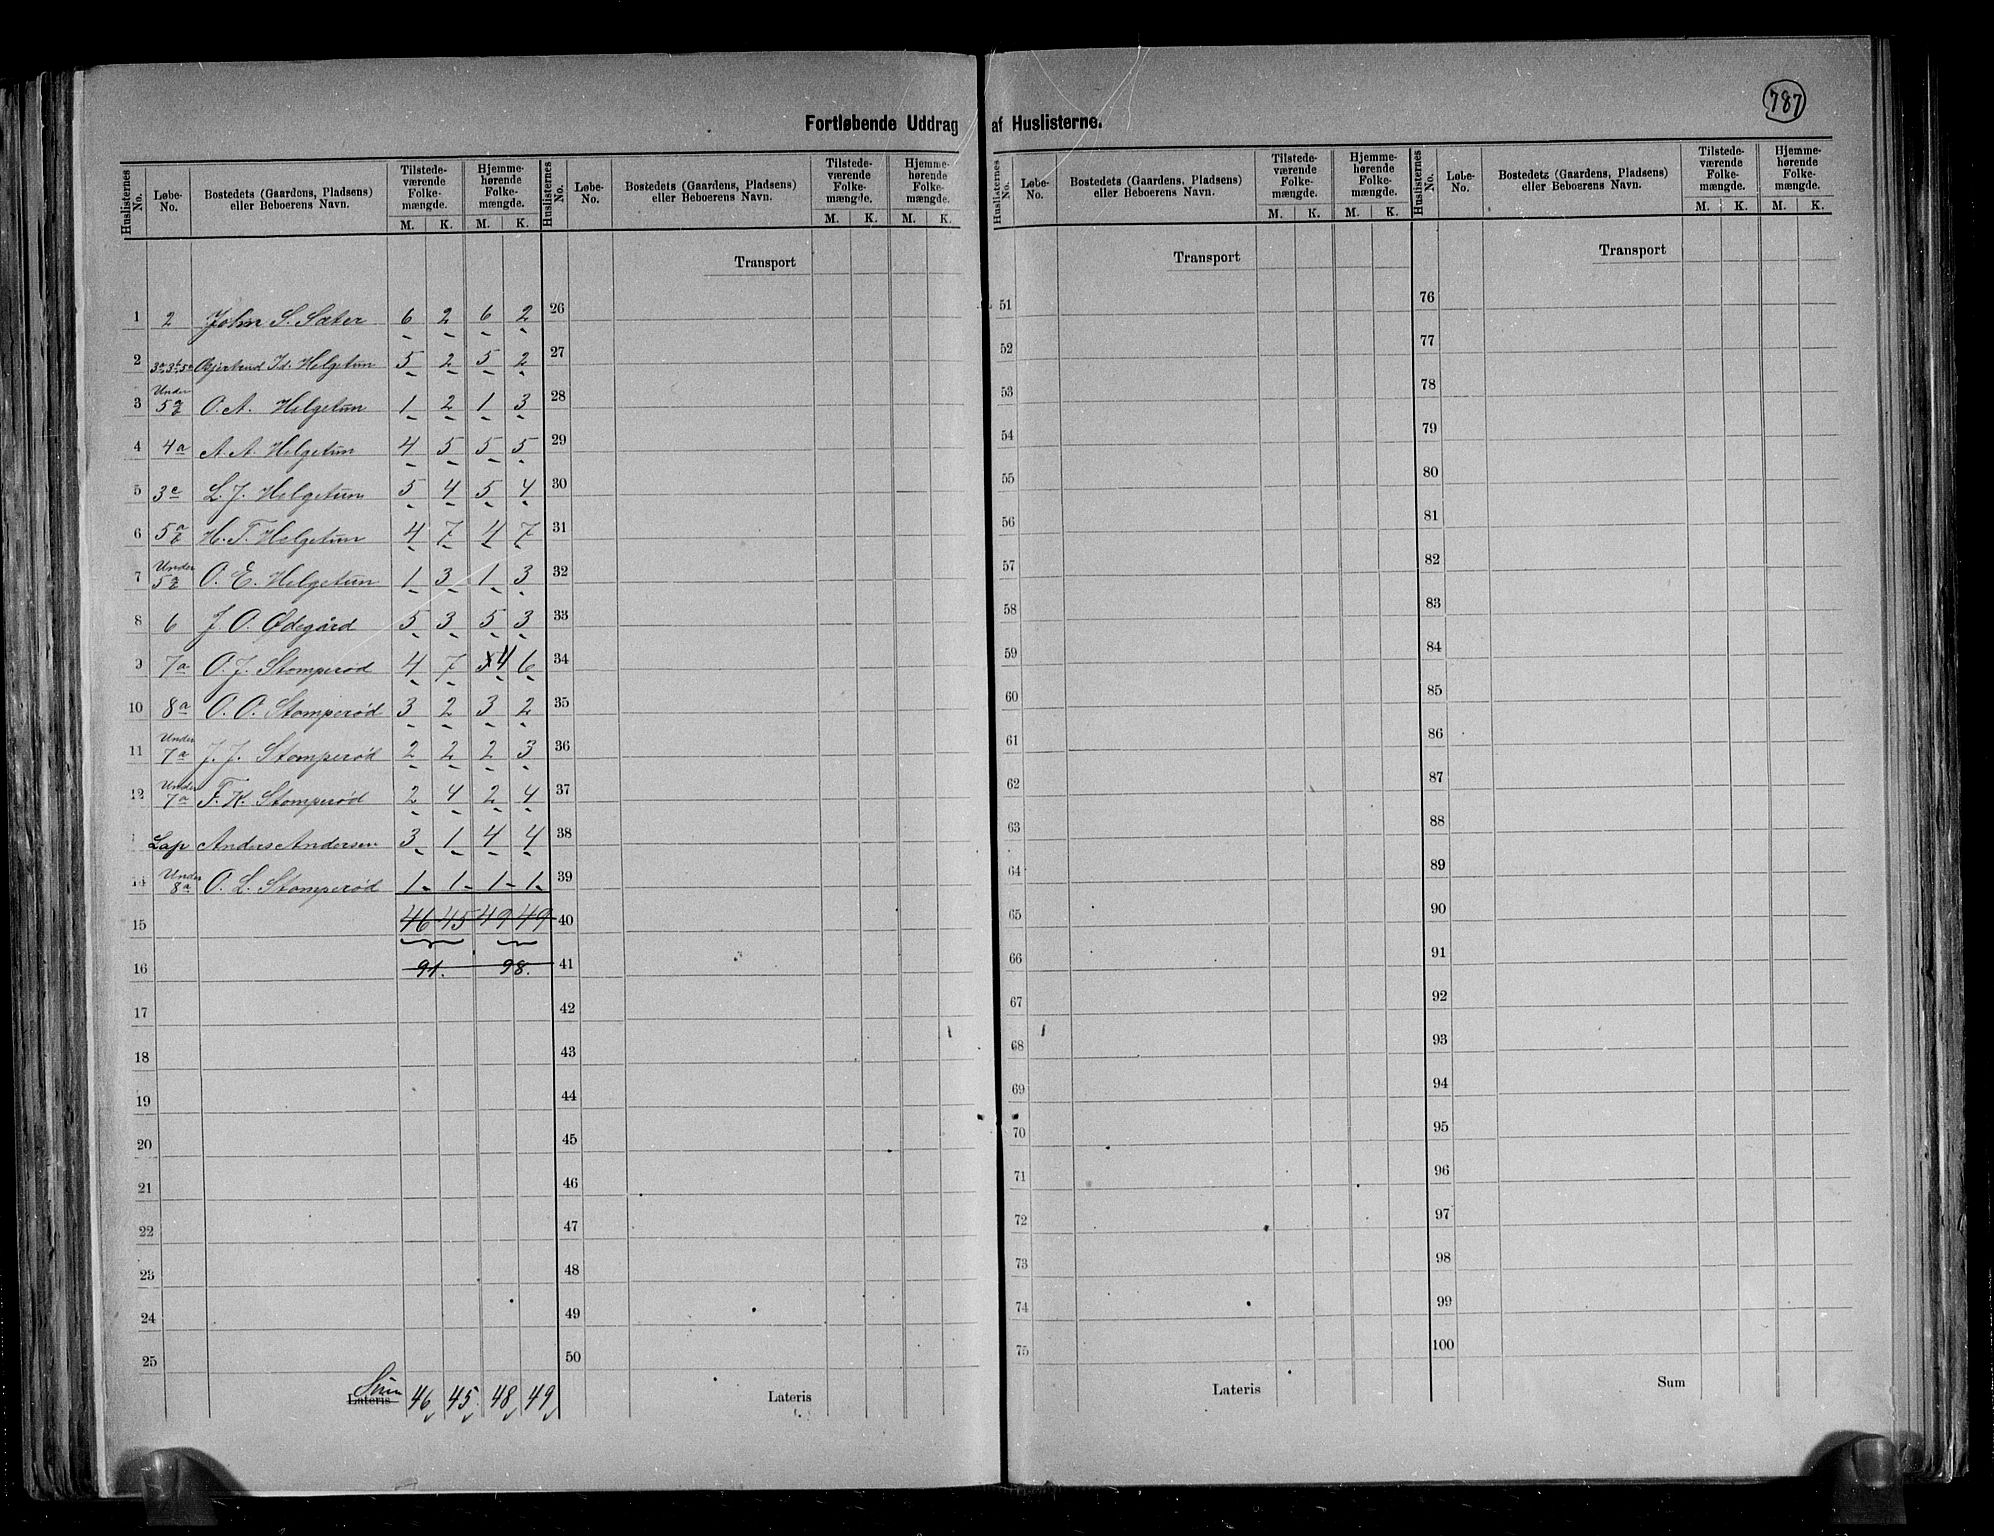 787
Fortløbende Uddrag af Huslisterne.
Huslisternes No. | Løbe-No. | Bostedets (Gaardens, Pladsens) eller Beboerens Navn. | Tilstedeværende Folkemængde. M. K. | Hjemmehørende Folkemængde. M. K.
Huslisternes No. | Løbe-No. | Bostedets (Gaardens, Pladsens) eller Beboerens Navn. | Tilstedeværende Folkemængde. M. K. | Hjemmehørende Folkemængde. M. K.
Huslisternes No. | Løbe-No. | Bostedets (Gaardens, Pladsens) eller Beboerens Navn. | Tilstedeværende Folkemængde. M. K. | Hjemmehørende Folkemængde. M. K.
Huslisternes No. | Løbe-No. | Bostedets (Gaardens, Pladsens) eller Beboerens Navn. | Tilstedeværende Folkemængde. M. K. | Hjemmehørende Folkemængde. M. K.
1 2 John S. Sæter 6 2 6 2
2 3a, 3b, 5c Gjertrud Jd. Helgetun 5 2 5 2
3 Under 5a O. A. Helgetun 1 2 1 3
4 4a A. A. Helgetun 4 5 5 5
5 3c L. J. Helgetun 5 4 5 4
6 5a H. T. Helgetun 4 7 4 7
7 Under 5a O. E. Helgetun 1 3 1 3
8 6 J. O. Ødegård 5 3 5 3
9 7a O. J. Stomperød 4 7 4 6
10 8a O. O. Stomperød 3 2 3 2
11 Under 7a J. J. Stomperød 2 2 2 3
12 Under 7a T. K. Stomperød 2 4 2 4
Lap Anders Andersen 3 1 4 4
14 Under 8a O. L. Stomperød 1 1 1 1
15 46 45 49 49
16 91. 98.
17
18
19
20
21
22
23
24
25
Sum Lateris 46 45 48 49
Transport
26
27
28
29
30
31
32
33
34
35
36
37
38
39
40
41
42
43
44
45
46
47
48
49
50
Lateris
Transport
51
52
53
54
55
56
57
58
59
60
61
62
63
64
65
66
67
68
69
70
71
72
73
74
75
Lateris
Transport
76
77
78
79
80
81
82
83
84
85
86
87
88
89
90
91
92
93
94
95
96
97
98
99
100
Sum